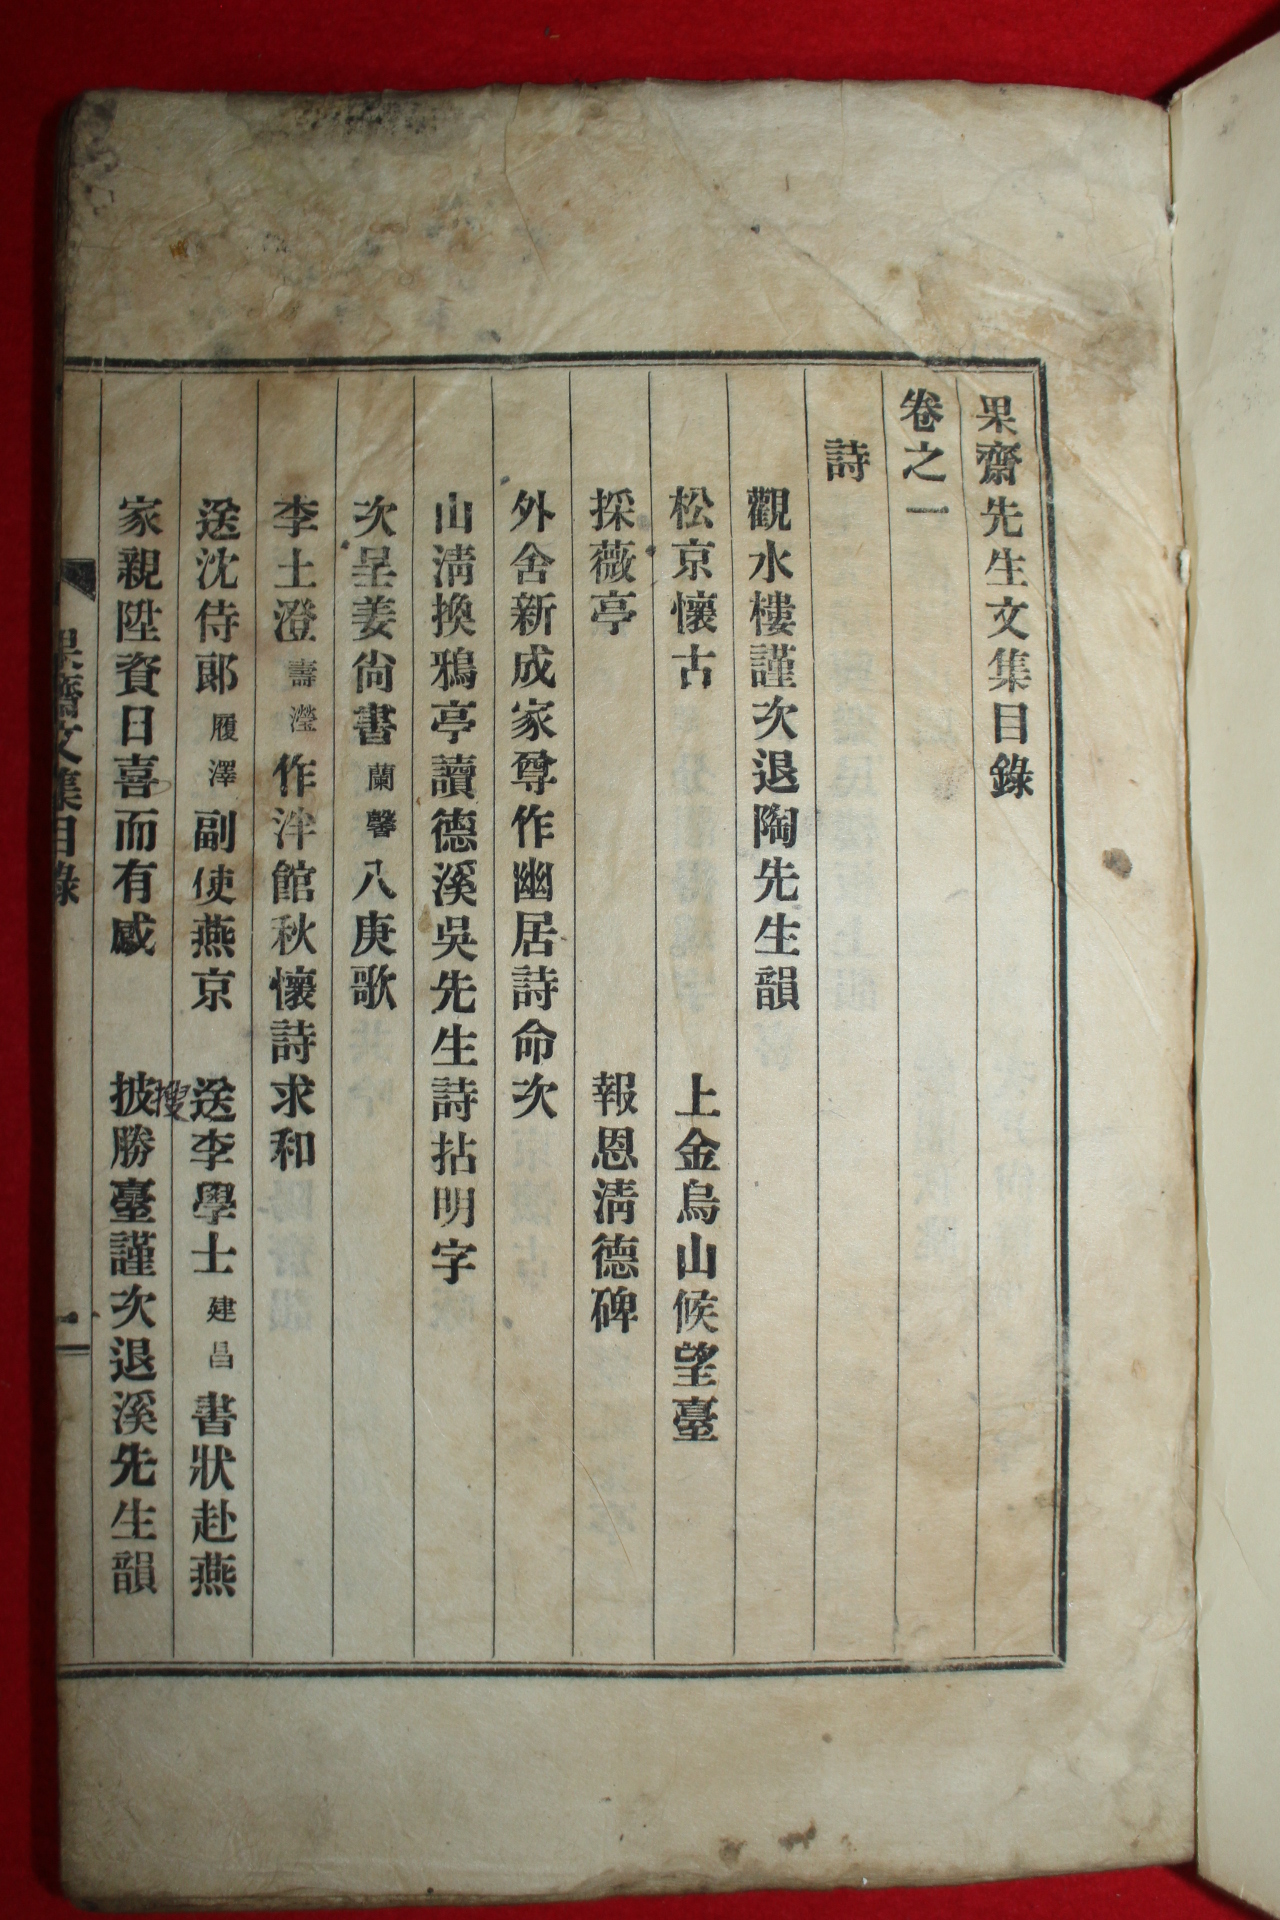 果齋先生文集目錄
卷之一
詩
觀水樓謹次退陶先生韻
松京懷古　上金烏山候望臺
採薇亭　報恩淸德碑
外舍新成家尊作幽居詩命次
山淸換鵝亭讀德溪吳先生詩拈明字
次呈姜尙書蘭馨八庚歌
李士澄壽瀅作泮館秋懷詩求和
送沈侍郞履澤副使燕京　送李學士建昌書狀赴燕
家親陞資日喜而有感　披勝臺謹次退溪先生韻
搜
果齋文集目錄
一